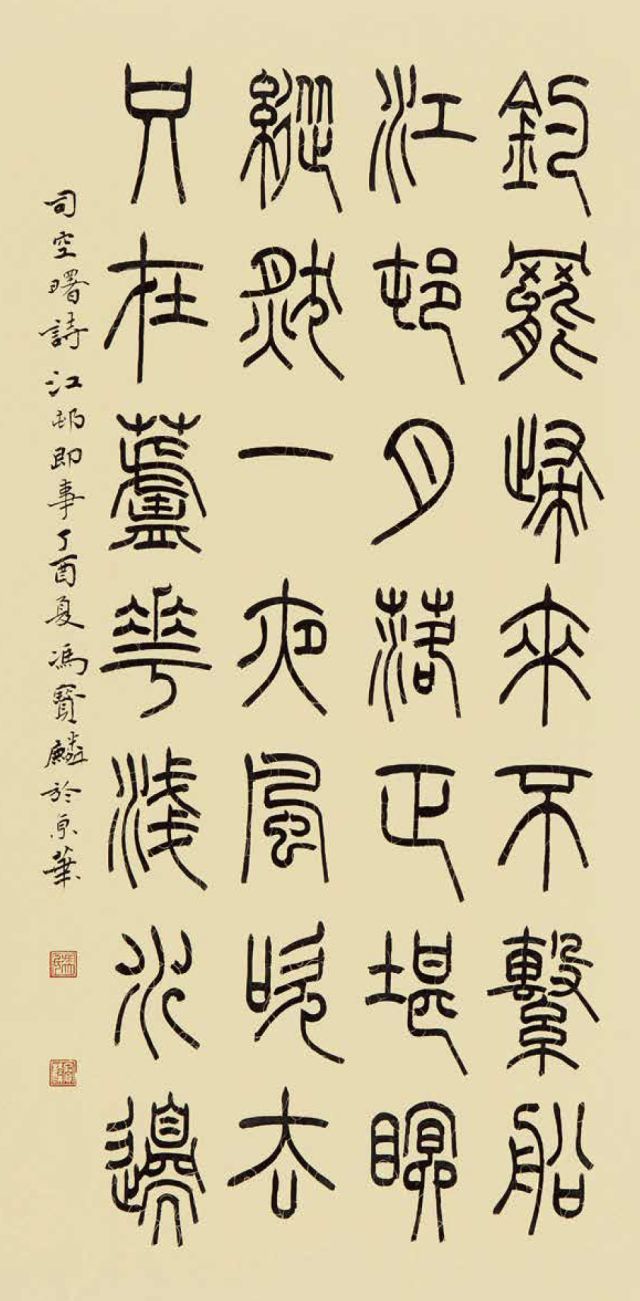 釣罷歸來不繫船
江邨月落正堪瞑
縱然一夜風吹去
只在蘆花淺水邊
司空曙詩江邨即事丁酉夏馮寶麟於京華